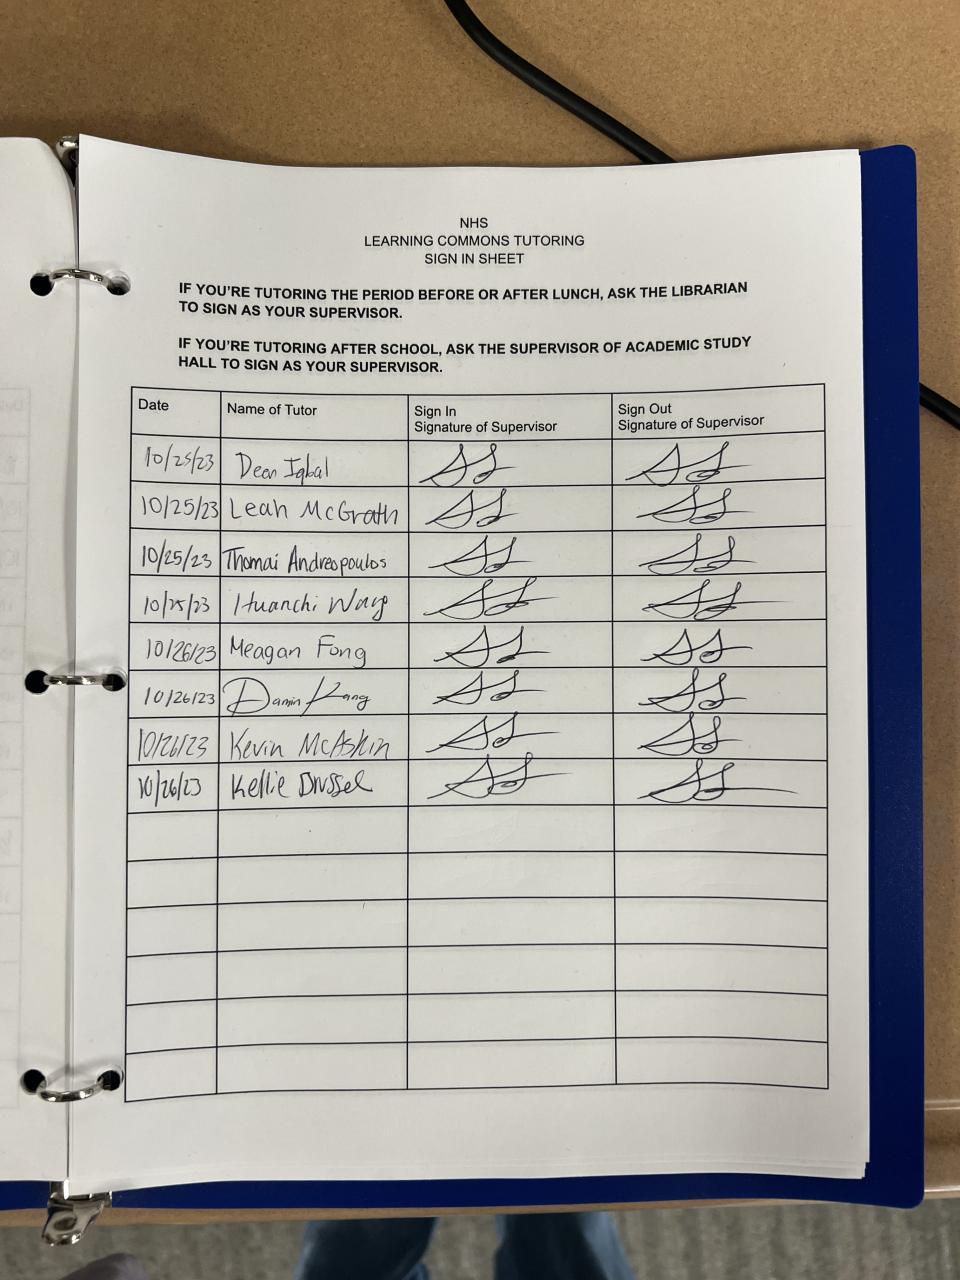 NHS
LEARNING COMMONS TUTORING
SIGN IN SHEET
IF YOU'RE TUTORING THE PERIOD BEFORE OR AFTER LUNCH, ASK THE LIBRARIAN
TO SIGN AS YOUR SUPERVISOR.
IF YOU'RE TUTORING AFTER SCHOOL, ASK THE SUPERVISOR OF ACADEMIC STUDY
HALL TO SIGN AS YOUR SUPERVISOR.
Date Name of Tutor Sign In Sign Out
Signature of Supervisor Signature of Supervisor
10/25/23 Dean Iqbal
10/25/23 Leah McGrath
10/25/23 Thomai Andreopoulos
10/25/23 Huanchi Wang
10/26/23 Meagan Fong
10/26/23 Damin Kang
10/26/23 Kevin McAskin
10/26/23 Kellie Drussel